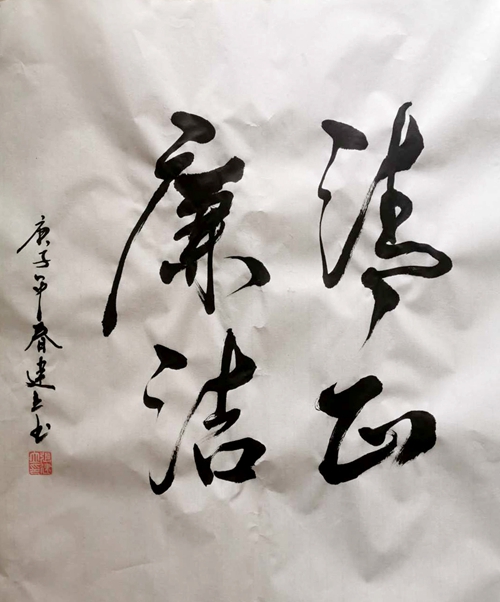 清正
廉洁
庚子年春建立书